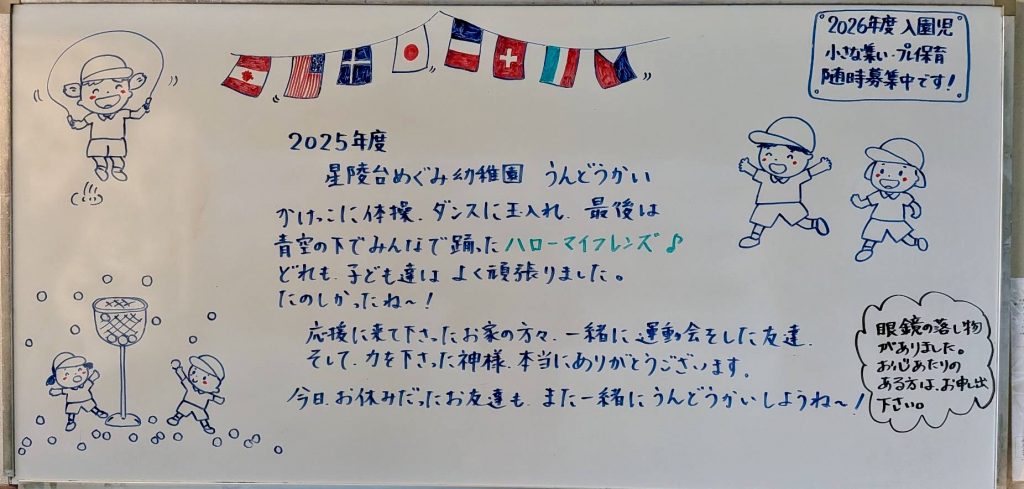 2026年度 入園児
小さな集い・プレ保育
随時募集中です!
2025年度
星陵台めぐみ幼稚園 うんどうかい
かけっこに体操、ダンスに玉入れ、最後は
青空の下でみんなで踊ったハローマイフレンズ♪
どれも、子ども達は よく頑張りました。
たのしかったね〜!
応援に来て下さったお家の方々、一緒に運動会をした友達、
そして、力を下さった神様、本当にありがとうございます。
今日、お休みだったお友達も、また一緒にうんどうかいしようね〜!
眼鏡の落し物
がありました。
お心あたりの
ある方は、お申し出
下さい。